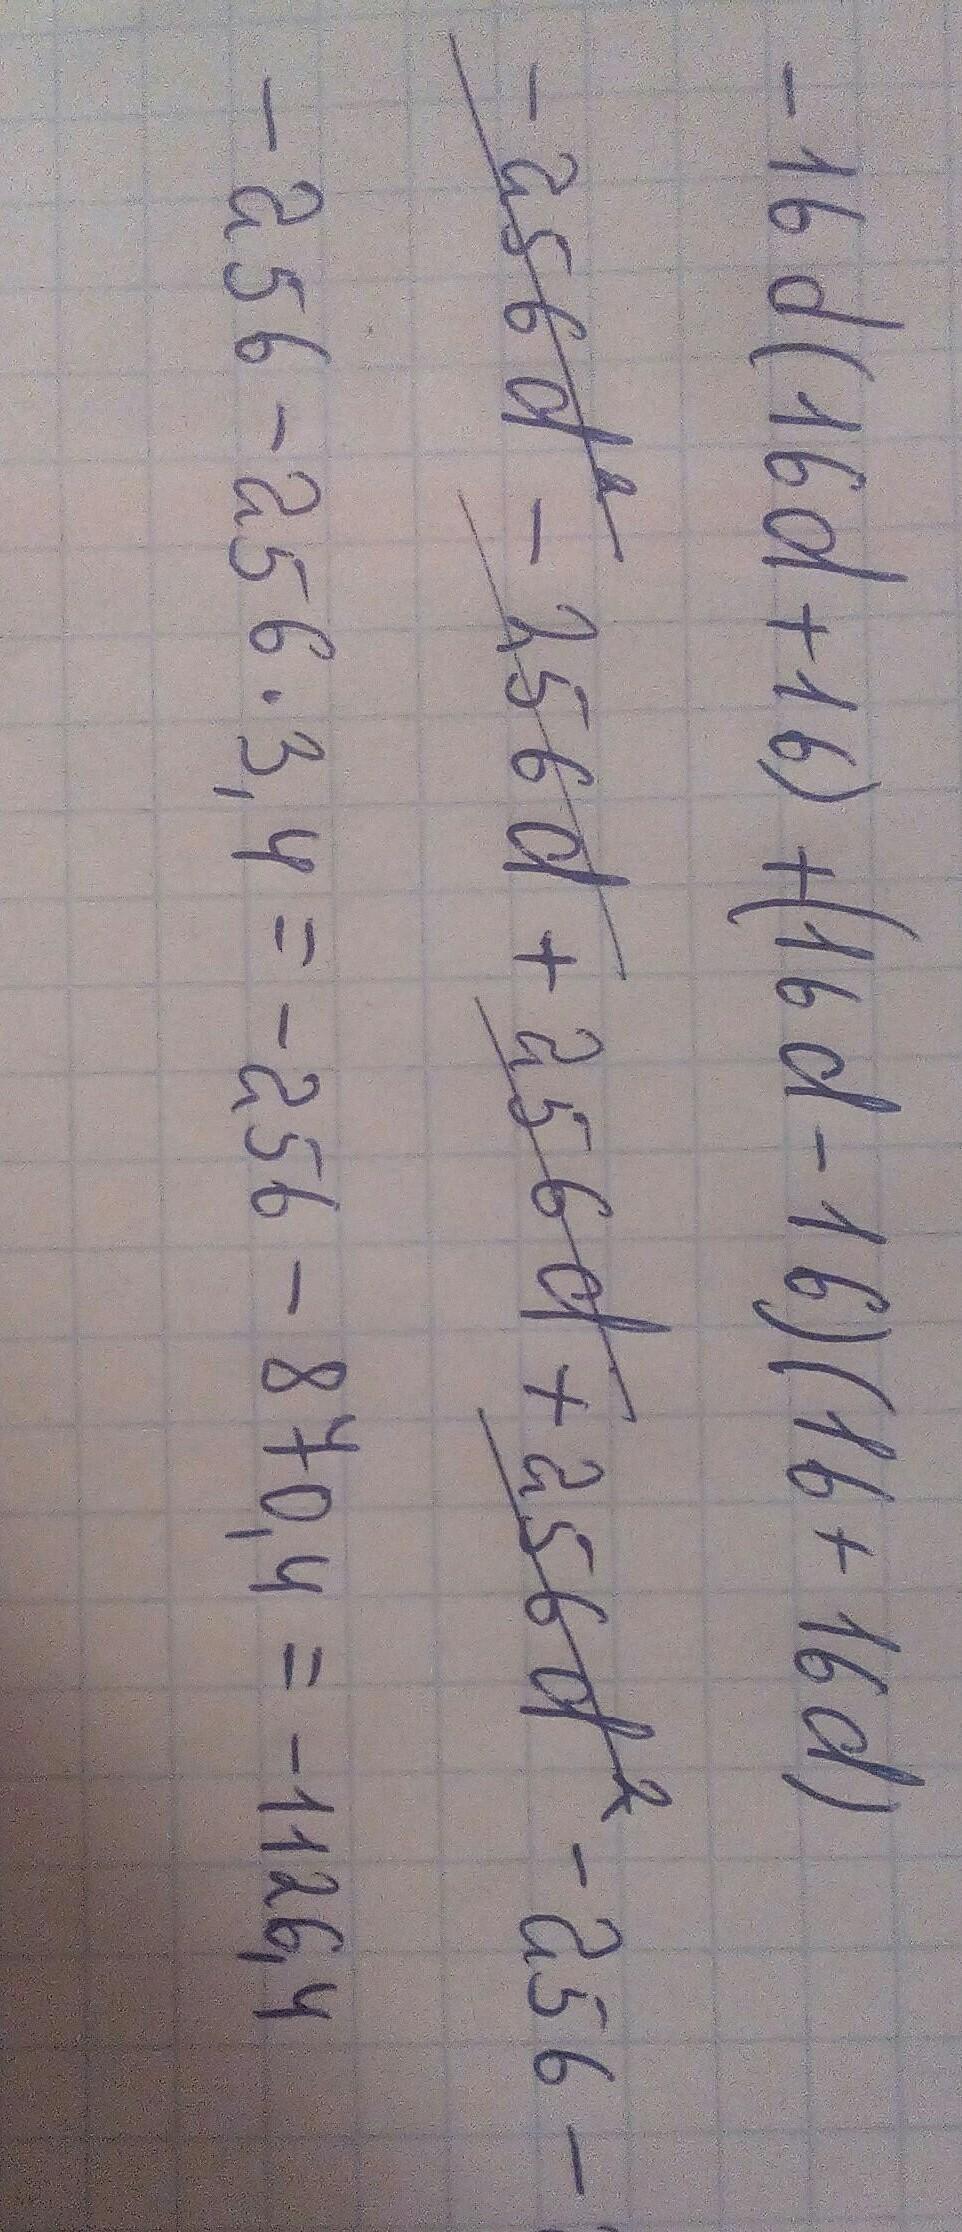 -16d(16d+16)+(16d-16)(16+16d)
-256d²-256d+256d+256d²-256-
-256-256·3,4=-256-870,4=-1126,4